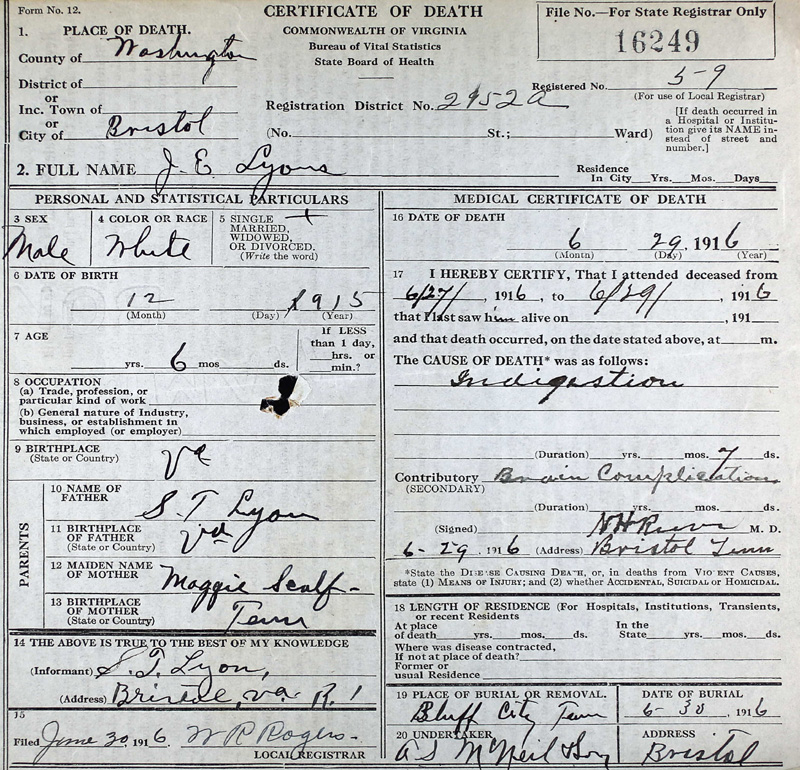 Form No. 12.
CERTIFICATE OF DEATH
COMMONWEALTH OF VIRGINIA
Bureau of Vital Statistics
State Board of Health
File No.—For State Registrar Only
16249
1. PLACE OF DEATH.
County of Washington
District of
or
Inc. Town of
or
City of Bristol
Registration District No. 2952a
Registered No. 59
(For use of Local Registrar)
(No. St.; Ward)
[If death occurred in a Hospital or Institution give its NAME instead of street and number.]
2. FULL NAME J. E. Lyons
Residence
In City Yrs. Mos. Days
PERSONAL AND STATISTICAL PARTICULARS
3 SEX
Male
4 COLOR OR RACE
White
5 SINGLE
MARRIED,
WIDOWED,
OR DIVORCED.
(Write the word)
6 DATE OF BIRTH
12 1915
(Month) (Day) (Year)
7 AGE
yrs. 6 mos. ds.
If LESS than 1 day,
hrs. or
min.?
8 OCCUPATION
(a) Trade, profession, or
particular kind of work
(b) General nature of Industry,
business, or establishment in
which employed (or employer)
9 BIRTHPLACE
(State or Country)
Va
PARENTS
10 NAME OF
FATHER
S. T Lyon
11 BIRTHPLACE
OF FATHER
(State or Country)
Va
12 MAIDEN NAME
OF MOTHER
Maggie Scalf
13 BIRTHPLACE
OF MOTHER
(State or Country)
Tenn
14 THE ABOVE IS TRUE TO THE BEST OF MY KNOWLEDGE
(Informant) S. T. Lyon,
(Address) Bristol, va. R. 1
15
Filed June 30, 1916. W R Rogers
LOCAL REGISTRAR
MEDICAL CERTIFICATE OF DEATH
16 DATE OF DEATH
6 29, 1916
(Month) (Day) (Year)
17 I HEREBY CERTIFY, That I attended deceased from
6/27/, 1916, to 6/29/, 1916
that I last saw him alive on , 191
and that death occurred, on the date stated above, at m.
The CAUSE OF DEATH* was as follows:
Indigestion
(Duration) yrs. mos. 7 ds.
Contributory Brain Complication
(SECONDARY)
(Duration) yrs. mos. ds.
(Signed) M. D.
6-29, 1916 (Address) Bristol Tenn
*State the DISEASE CAUSING DEATH, or, in deaths from VIOLENT CAUSES,
state (1) MEANS OF INJURY; and (2) whether ACCIDENTAL, SUICIDAL OR HOMICIDAL.
18 LENGTH OF RESIDENCE (For Hospitals, Institutions, Transients,
or recent Residents
At place
of death yrs. mos. ds.
In the
State yrs. mos. ds.
Where was disease contracted,
If not at place of death?
Former or
usual Residence
19 PLACE OF BURIAL OR REMOVAL.
Bluff City Tenn
DATE OF BURIAL
6-30, 1916
20 UNDERTAKER
A S McNeil & Son
ADDRESS
Bristol